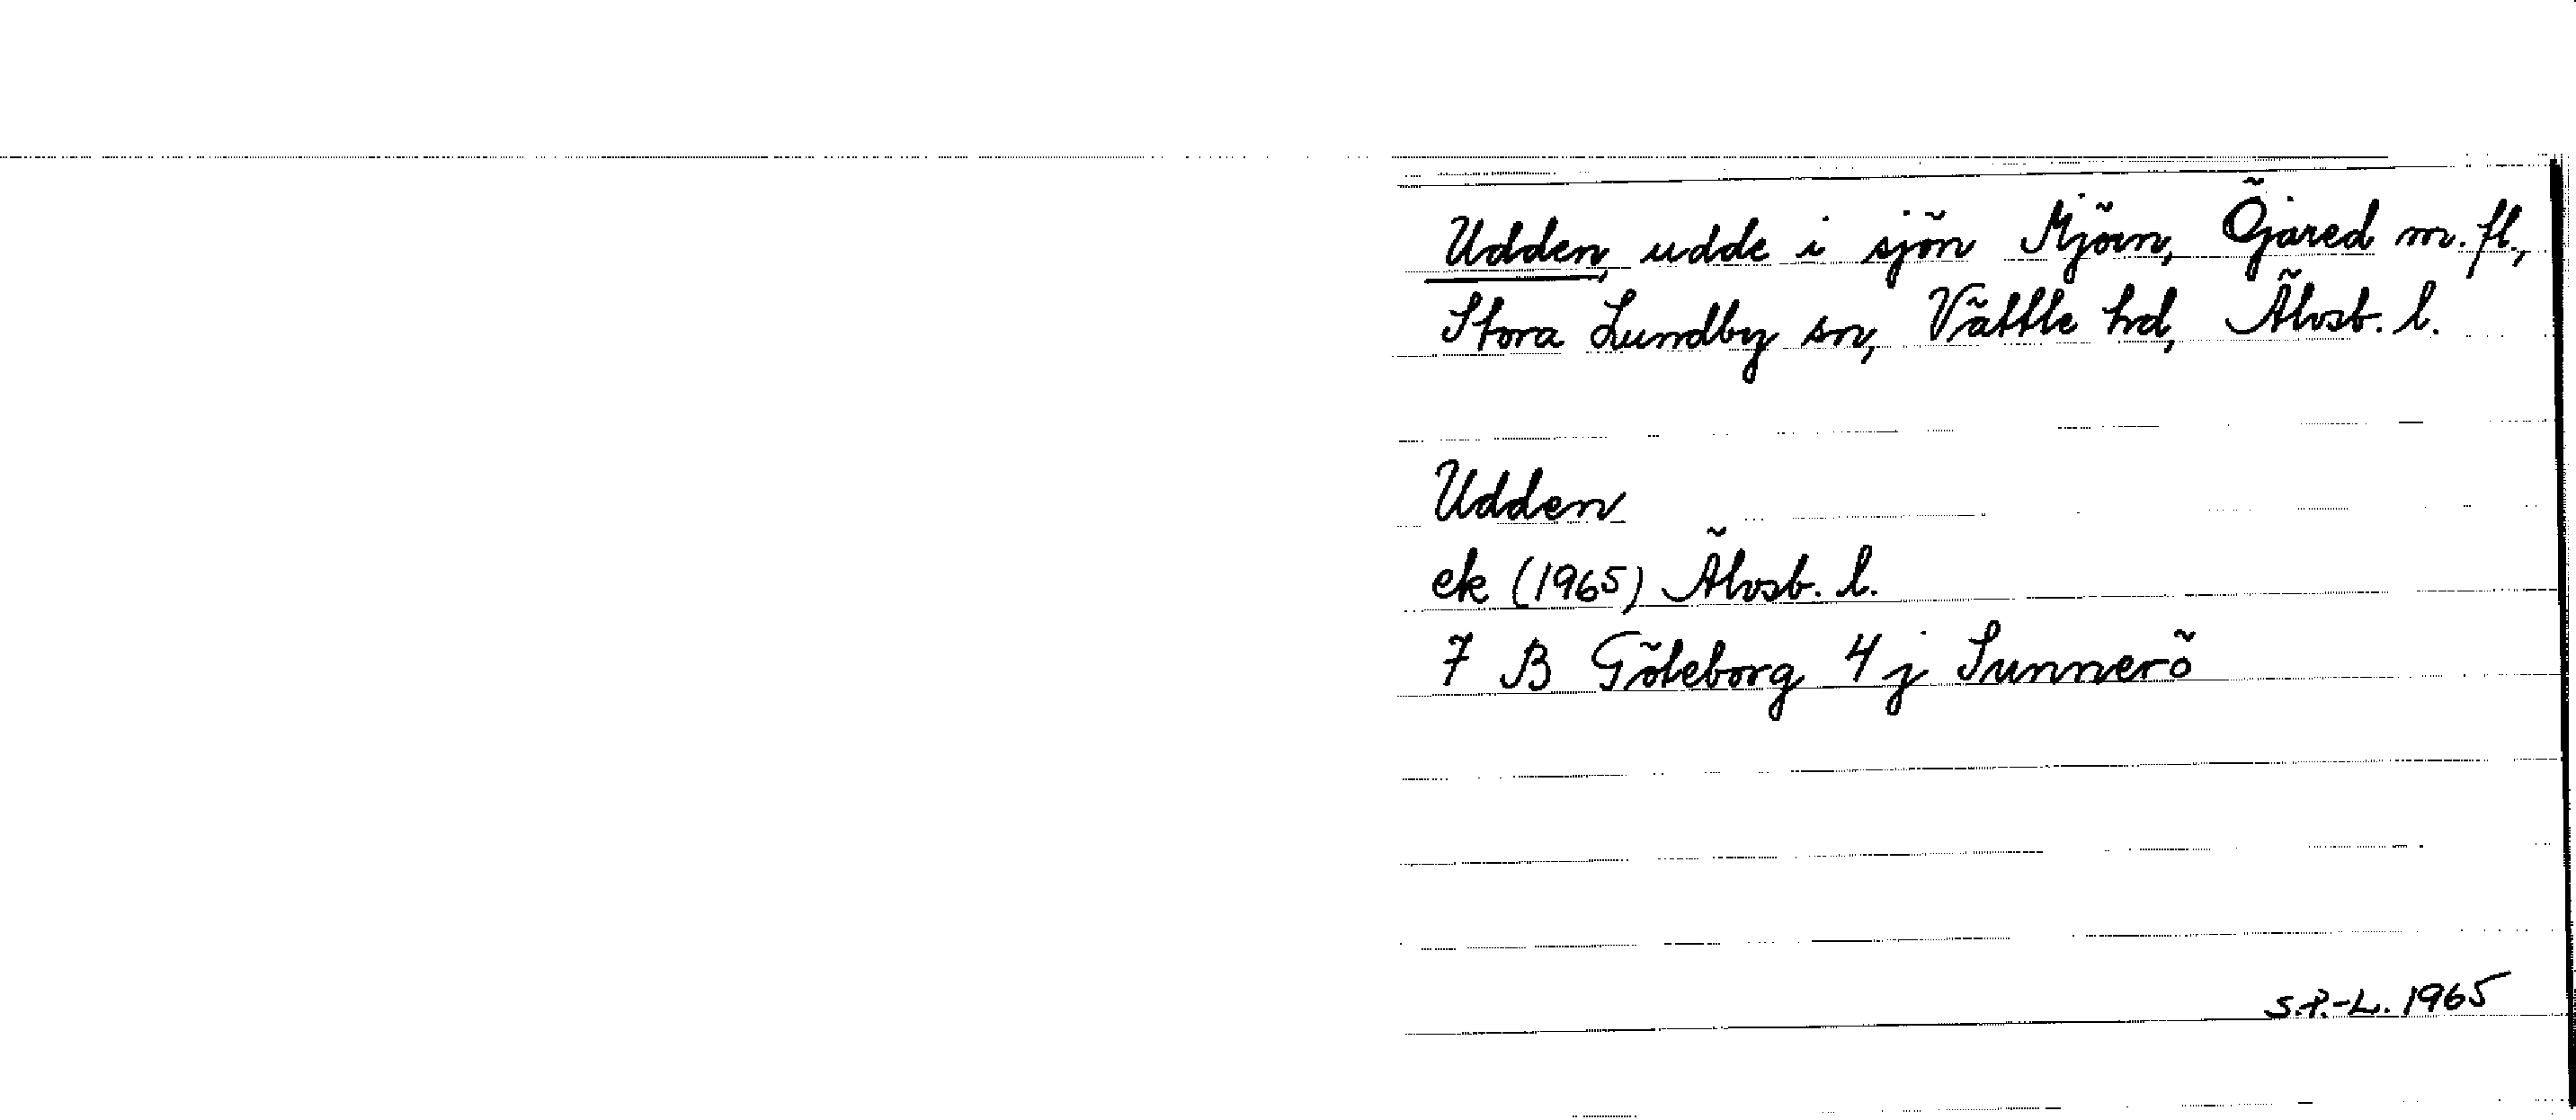 Udden, udde i sjön Mjörn, Öjared m. fl.,
Stora Lundby sn, Vättle hd, Älvsb. l.
Udden
ek (1965) Älvsb. l.
7 B Göteborg 4 j Sunnerö
S.P.-L. 1965